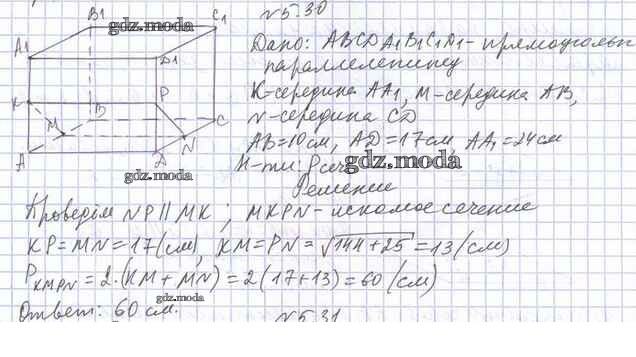 №5.30
B1 C1
gdz.moda
A1 D1
K P
B C
M N
A D
Дано: ABCDA1B1C1D1 - прямоугольн
параллелепипед
K-середина AA1, M-середина AB,
N-середина CD
AB=10см, AD=17см, AA1=24см
Н-ти: Pсеч
gdz.moda
Решение
Проведём NP || MK ; MKPN - искомое сечение
gdz.moda
KP=MN=17(см), KM=PN=√144+25=13(см)
PKMPN=2·(KM+MN)=2(17+13)=60(см)
gdz.moda
Ответ: 60 см.
№5.31